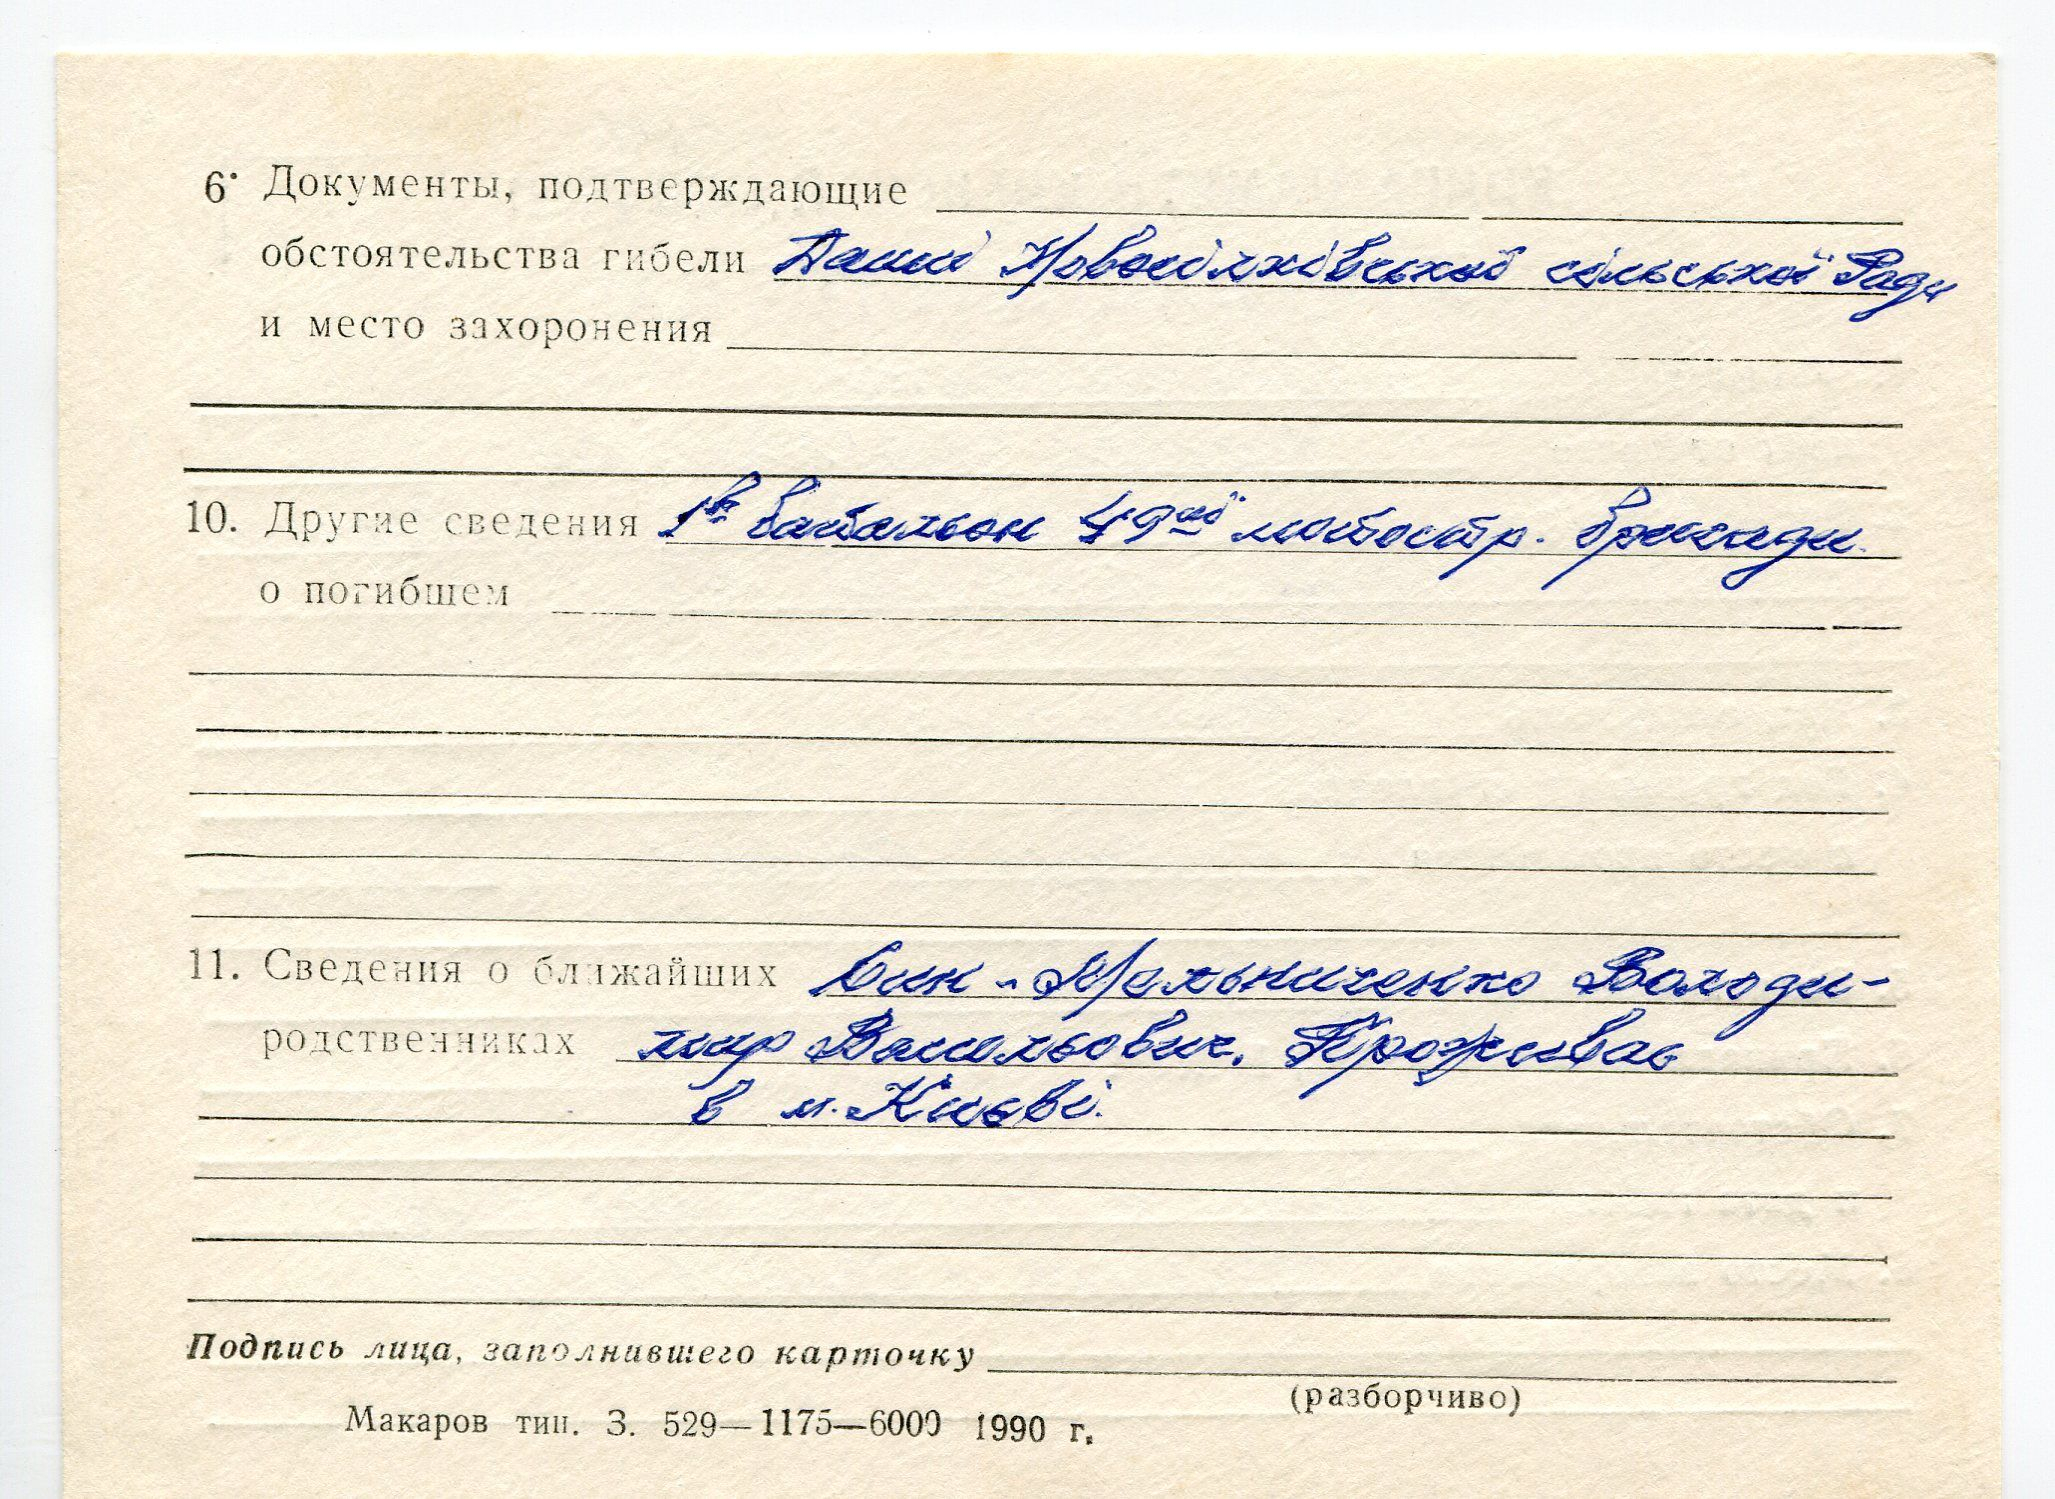 6. Документы, подтверждающие
обстоятельства гибели Данні Новосілківської сільської Ради
и место захоронения
10. Другие сведения 1й батальон 49ої мотостр. бригади.
о погибшем
11. Сведения о ближайших Син - Мельниченко Володи-
родственниках мир Васильович. Проживає
в м. Києві.
Подпись лица, заполнившего карточку
(разборчиво)
Макаров тип. З. 529—1175—6000 1990 г.